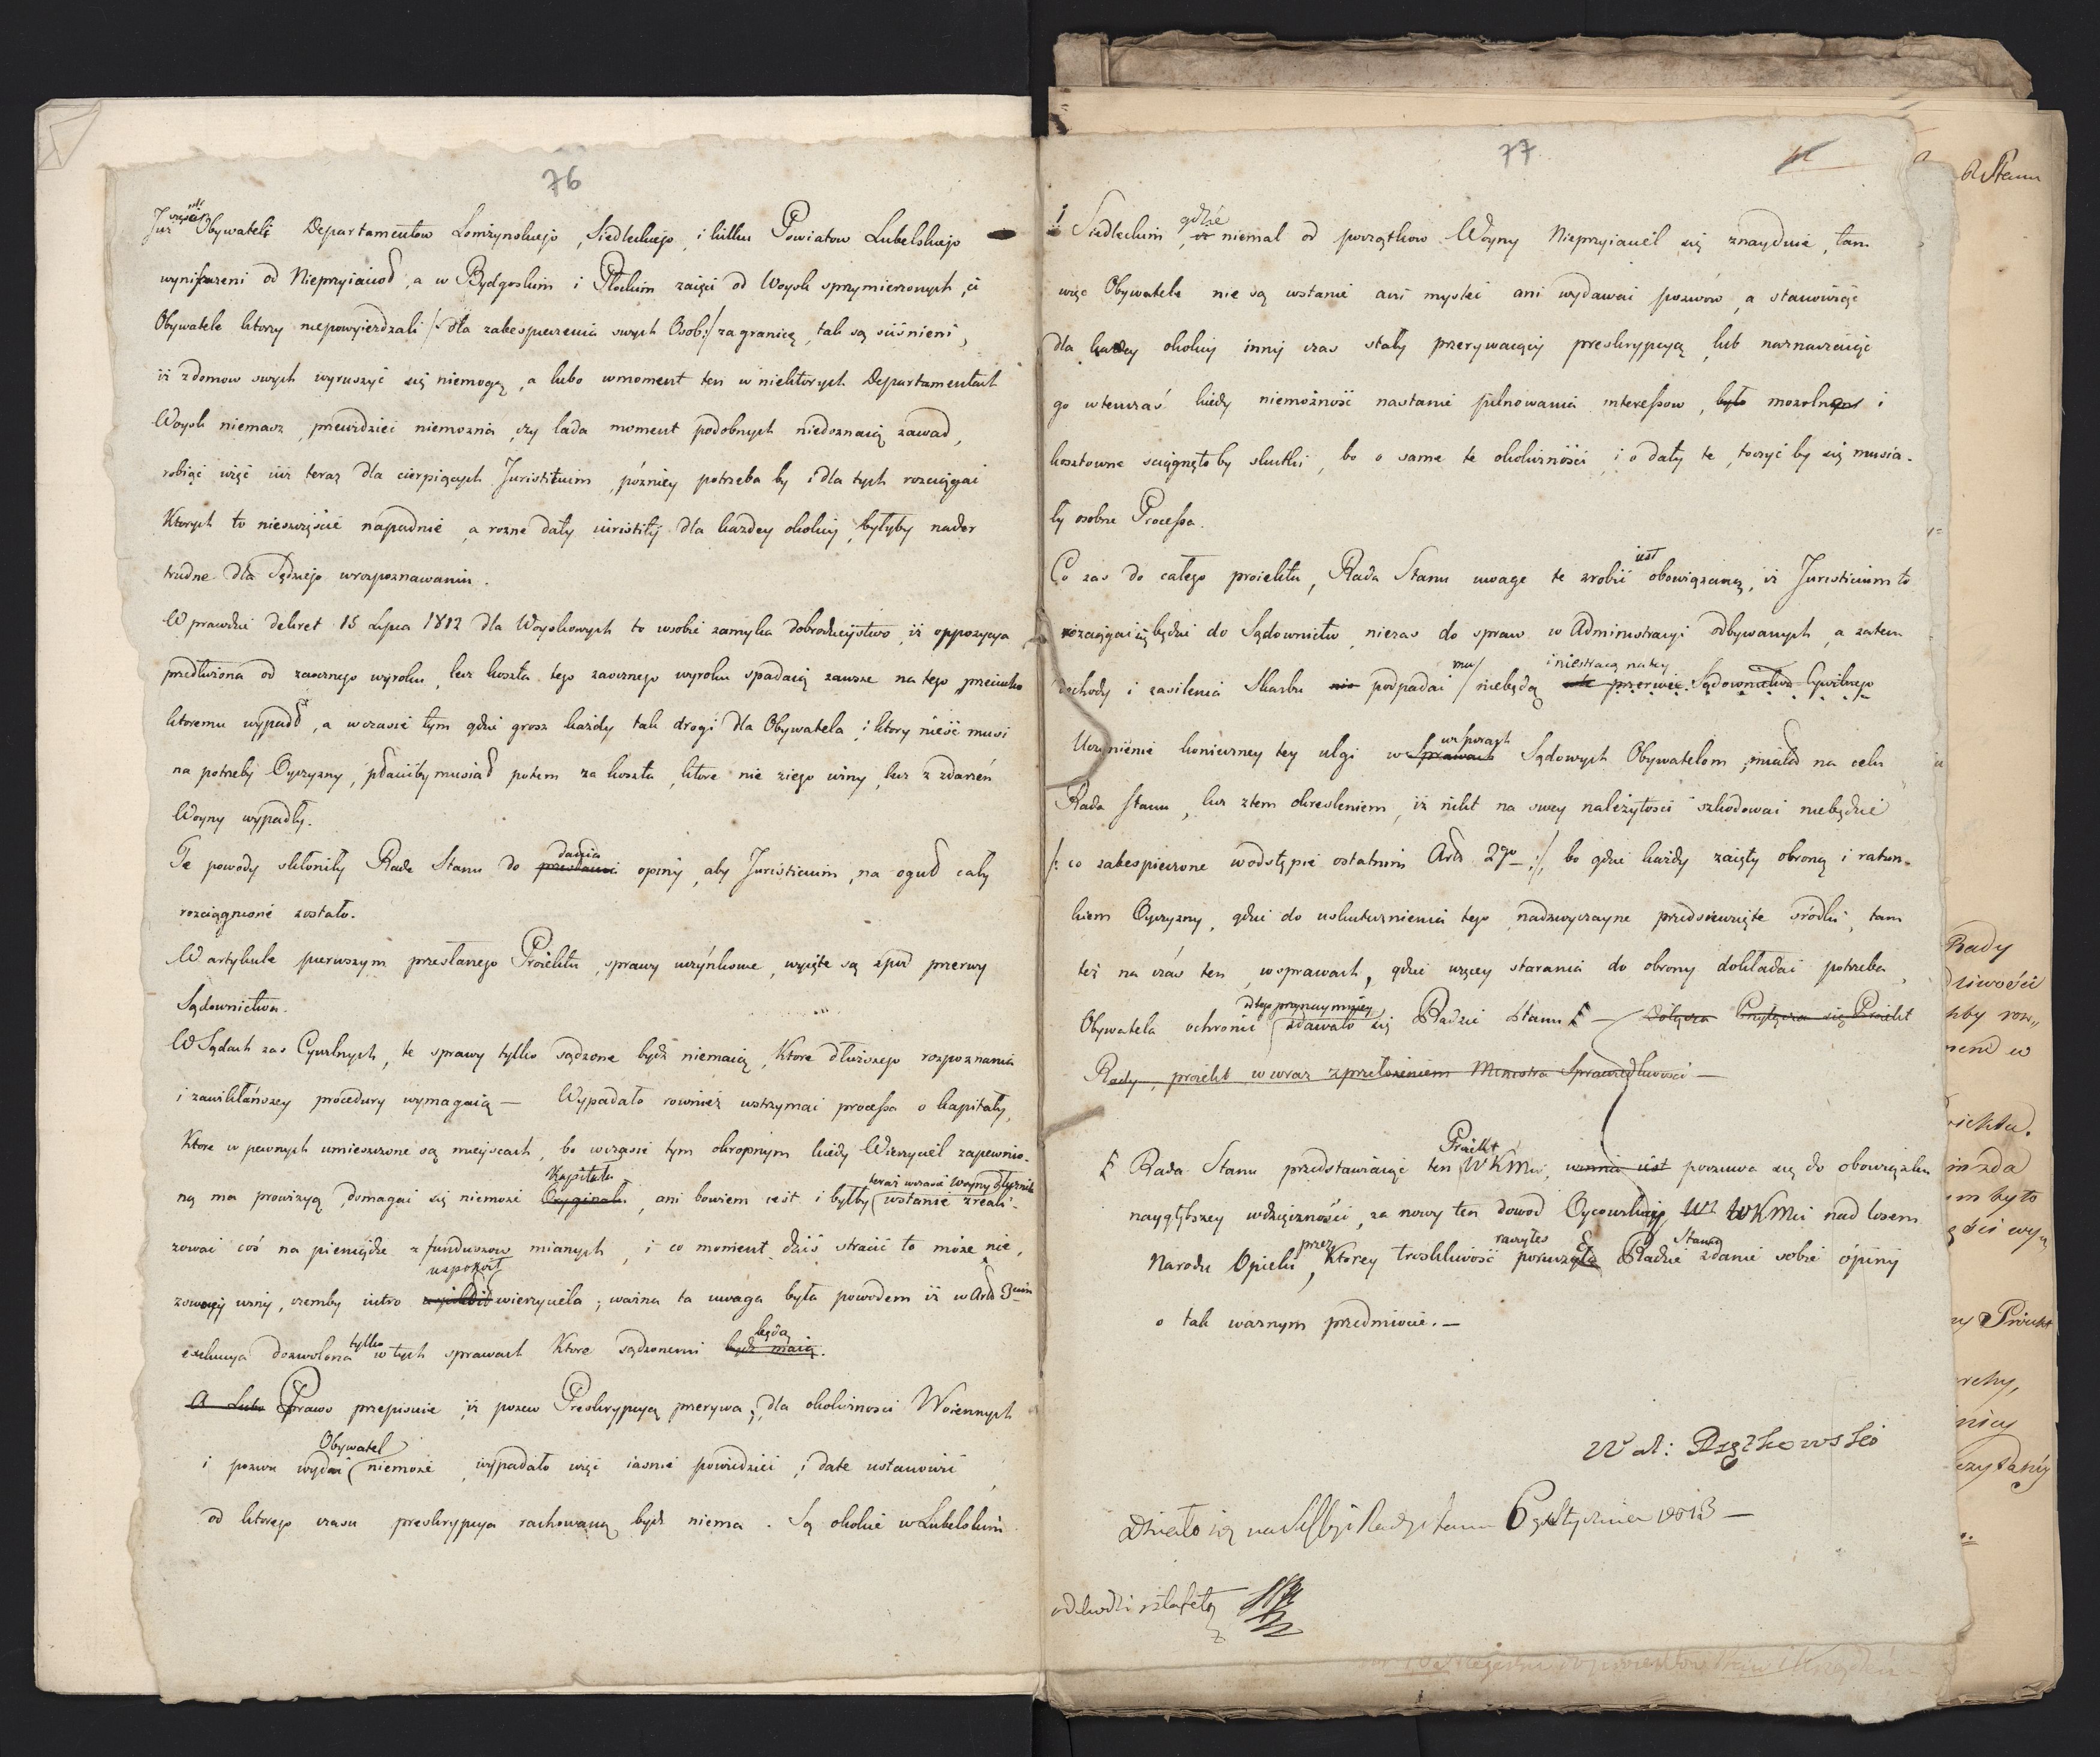 76
Już Obywateli Departamentow Łomżynskiego, Siedleckiego, i kilku Powiatow Lubelskiego
wyniszczeni od Nieprzyiacioł, a w Bydgoskim i Płockim zaięci od Woysk sprzymierzonych, ci
Obywatele ktorzy niepowyiezdzali /: dla zabespieczenia swych Osob :/ za granicę, tak są sciśnieni,
iż z domow swych wyruszyć się niemogą, a lubo w moment ten w niektorych Departamentach
Woysk niemasz, przewidzieć niemożna, czy lada moment podobnych niedoznaią zawad,
robiąc więc iuż teraz dla cierpiących Juristitium, poźniey potrzeba by i dla tych rozciągać
Ktorych to nieszczęście napadnie, a rożne daty iuristitij dla każdey okolicy, byłyby nader
trudne dla Sędziego w rozpoznawaniu.
W prawdzie dekret 15 Lipca 1812 dla Woyskowych to w sobie zamyka dobrodzieystwo, iż oppozycya
przedłużona od zaocznego wyroku, lecz koszta tego zaocznego wyroku spadaią zawsze na tego przeciwko
ktoremu wypadł, a w czasie tym gdzie grosz każdy tak drogi dla Obywatela, i ktory nieść musi
na potrzeby Oyczyzny, płacićby musiał potem za koszta, ktore nie z iego winy, lecz z zdarzeń
Woyny wypadły.
Te powody skłoniły Radę Stanu do przesłania dania opinij, aby Juristicium, na oguł cały
rozciągnione zostało.
W artykule pierwszym przesłanego Proiektu, sprawy uczynkowe, wyięte są z pod przerwy
Sądownictwa.
W Sądach zas Cywilnych, te sprawy tylko sądzone bydź niemaią, Ktore dłuższego rozpoznania
i zawikłańszey procedury wymagaią — Wypadało rownież wstrzymać processa o kapitały,
Ktore w pewnych umieszczone są mieyscach, bo w czasie tym okropnym kiedy Wierzyciel zapewnio-
ną ma prowizyą, domagać się niemoże Oryginału Kapitału, ani bowiem iest i byłby teraz w czasie Woyny dłużnik w stanie zreali-
zować coś na pieniądze z funduszow mianych, i co moment dziś stracić to może nie,
uspokoił wierzyciela; ważna ta uwaga była powodem iż w Art 3cim
exekucya dozwolona tylko w tych sprawach Ktore sądzonemi bydź maią będą.
A Lubo Prawo przepisuie, iż pozew Preskrypcyą przerywa, dla okoliczności Woiennych
i pozwu wydać Obywatel niemoże, wypadało więc iasnie powiedzieć, i datę ustanowić
od ktorego czasu preskrypcya rachowaną bydź niema. Są okolice w Lubelskim
77
i Siedleckim, gdzie iż niemal od początkow Woyny Nieprzyiaciel się znayduie, tam
więc Obywatele nie są w stanie ani mysleć ani wydawać pozwow, a stanowiąc
dla każdey okolicy inny czas stały przerywaiący preskrypcyą, lub naznaczaiąc
go wtenczas kiedy niemożność nastanie pilnowania interessow, było mozolne i
kosztowne sciągnęło by skutki, bo o same te okoliczności, i o daty te, toczyć by się musia-
ły osobne Processa.
Co zas do całego proiektu, Rada Stanu uwagę tę zrobić iest obowiązaną, iż Juristicium to
rozciągać się będzie do Sądownictw, nie zas do spraw w Administracyi odbywanych, a zatem
dochody i zasilenia Skarbu nie podpadać mu/ niebędą i niestracą na tey przerwie Sądownictwa Cywilnego
Uczynienie konieczney tey ulgi w Sprawach w sporach Sądowych Obywatelom, miała na celu
Rada Stanu, lecz z tem okresleniem, iż nikt na swey należytości szkodować niebędzie
/: co zabespieczone w odstępie ostatnim Art 2go :/, bo gdzie każdy zaięty obroną i ratun-
kiem Oyczyzny, gdzie do uskutecznienia tego nadzwyczayne przedsiewzięte srodki, tam
też na czas ten, w sprawach, gdzie więcey starania do obrony dokładać potrzeba,
Obywatela ochronić od tego przynaymniey zdawało się Radzie Stanu — Dołącza Przyłącza się Proiekt
Rady, proiekt w wraz z przełożeniem Ministra Sprawiedliwości —
Rada Stanu przedstawiaiąc ten Proiekt WKMci, winna iest poczuwa się do obowiązku
naygłębszey wdzięczności, za nowy ten dowod Oycowskiey WKMci nad losem
Narodu Opieki, przez Ktorey troskliwość poruczyła raczyłeś Radzie Stanu zdanie sobie opinij
o tak ważnym przedmiocie. —
Wal: Rzątkowski
Działo się na Sessyi Rady Stanu 6go Stycznia 1813 —
odchodzi sztafetą